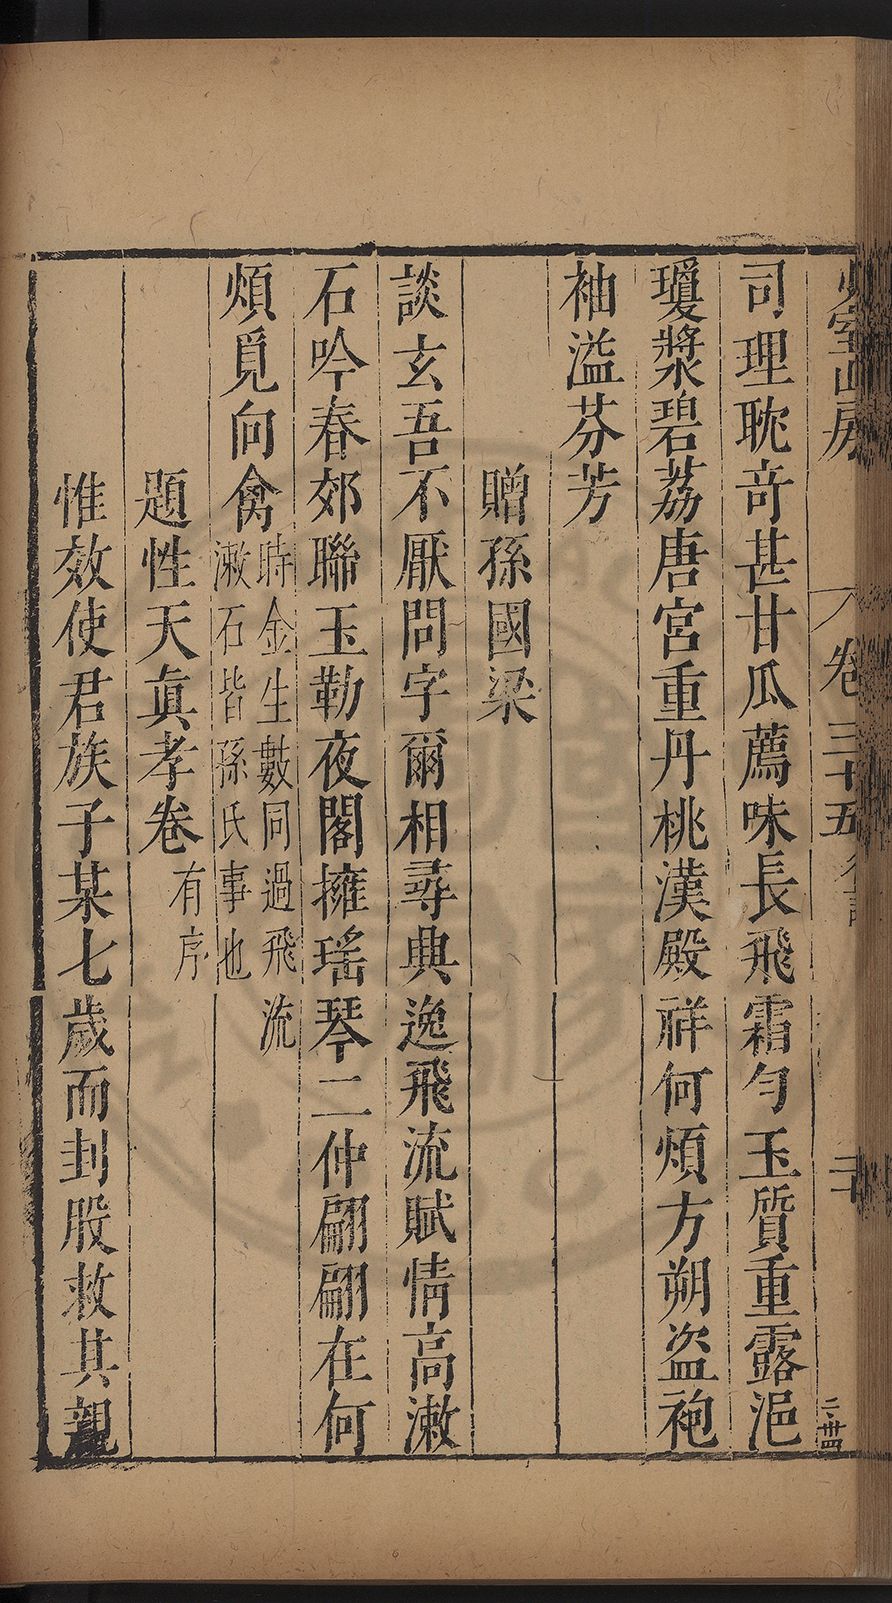 室山房
卷三十五
二十
司理耽竒甚甘瓜薦味長飛霜勻玉質重露浥
瓊漿碧荔唐宮重丹桃漢殿祥何煩方朔盜袍
袖溢芬芳
贈孫國梁
談玄吾不厭問字爾相尋典逸飛流賦情高漱
石吟春郊聯玉勒夜閣擁瑤琴二仲翩翩在何
煩覓向禽時金生數同過飛流
漱石皆孫氏事也
題性天眞孝卷有序
惟效使君族子某七歲而刲股救其親